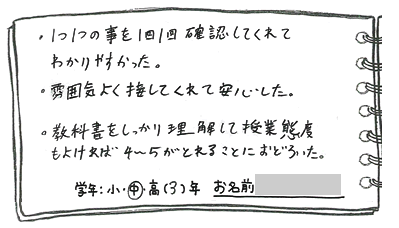 ・1つ1つの事を1回1回確認してくれて
わかりやすかった。
・雰囲気よく接してくれて安心した。
・教科書をしっかり理解して授業態度
もよければ4〜5がとれることにおどろいた。
学年:小・中・高(3)年 お名前